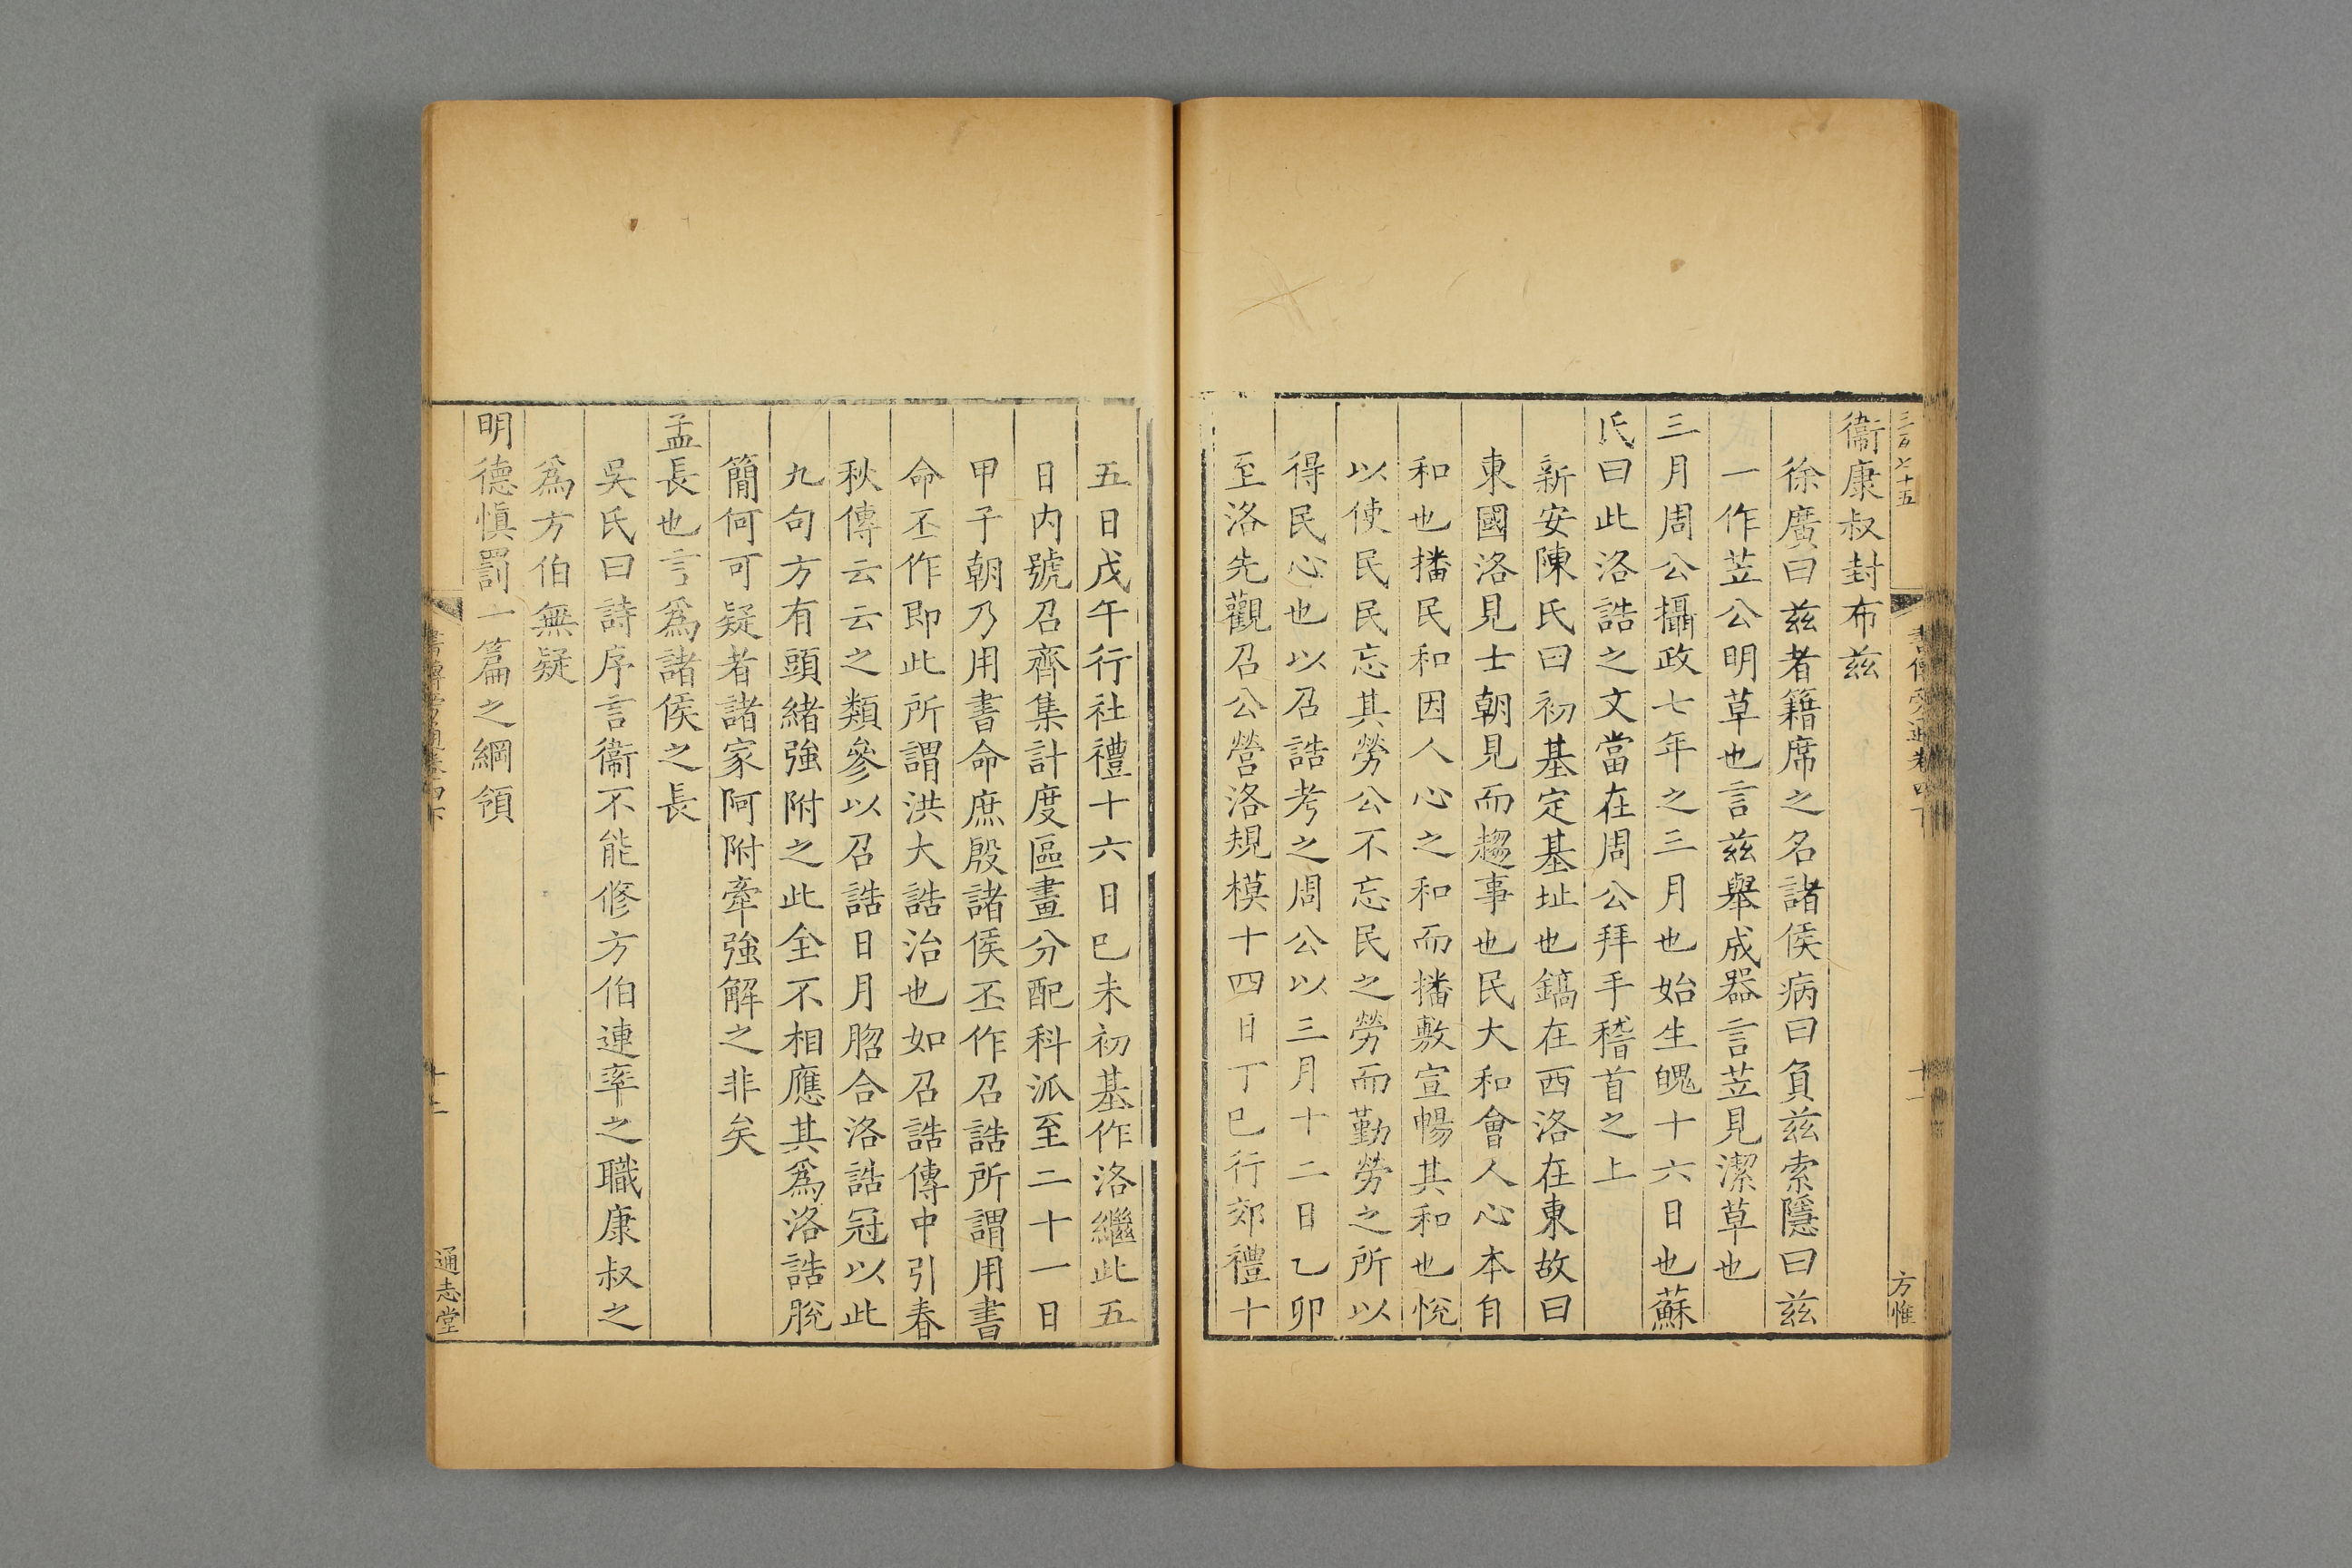 三百七十五
衞康叔封布兹
徐廣曰兹者籍席之名諸侯病曰負兹索隱曰兹
一作苙公明草也言兹舉成器言苙見潔草也
三月周公攝政七年之三月也始生魄十六日也蘇
氏曰此洛誥之文當在周公拜手稽首之上
新安陳氏曰初基定基址也鎬在西洛在東故曰
東國洛見士朝見而趨事也民大和會人心本自
和也播民和因人心之和而播敷宣暢其和也悅
以使民民忘其勞公不忘民之勞而勤勞之所以
得民心也以召誥考之周公以三月十二日乙卯
至洛先觀召公營洛規模十四日丁巳行郊禮十
書傳旁通卷四下
十一
方惟
五日戊午行社禮十六日巳未初基作洛繼此五
日内號召齊集計度區畫分配科派至二十一日
甲子朝乃用書命庶殷諸侯丕作召誥所謂用書
命丕作即此所謂洪大誥治也如召誥傳中引春
秋傳云云之類參以召誥日月脗合洛誥冠以此
九句方有頭緒強附之此全不相應其爲洛誥脫
簡何可疑者諸家阿附牽強解之非矣
孟長也言爲諸侯之長
吳氏曰詩序言衞不能修方伯連率之職康叔之
爲方伯無疑
明德愼罰一篇之綱領
通志堂